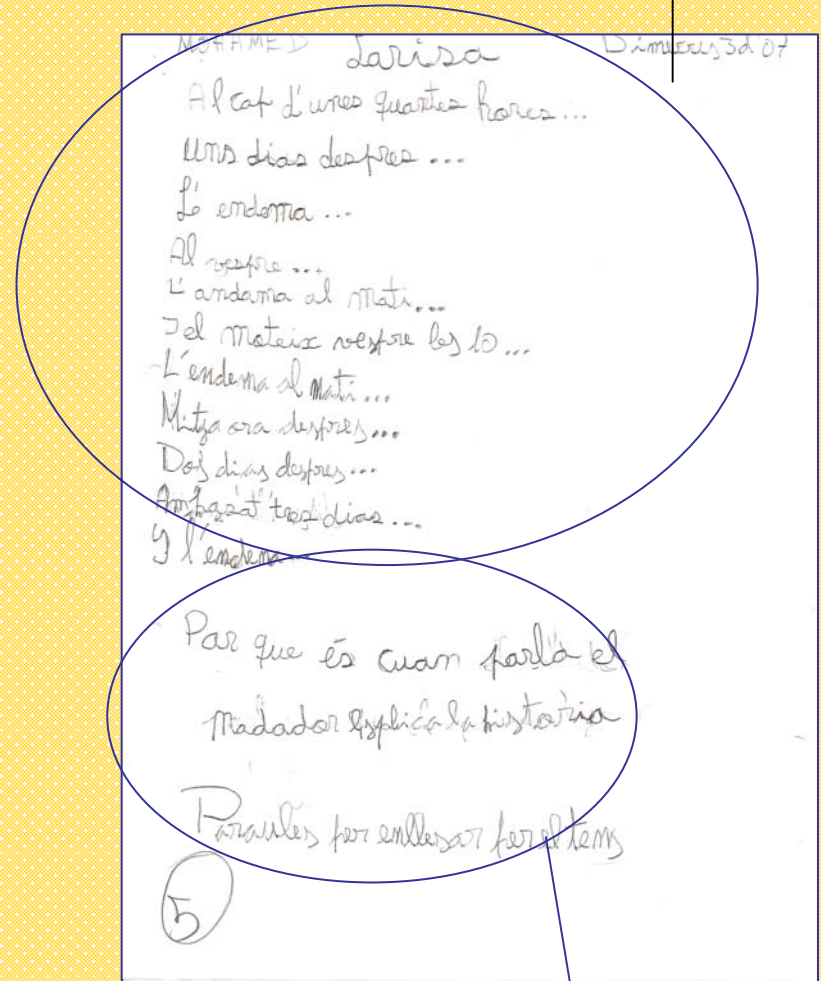 MOHAMED Larisa Dimecres 3d'07
Al cap d'unes quantes hores...
Uns dias despres...
L'endema...
Al vespre...
L'andama al mati...
I el mateix vespre les 10...
L'endema al mati...
Mitja ora despres...
Dos dias despres...
Am pasat tres dias...
I l'endema
Par que és cuan parla el
madador esplica la historia
Paraules per enllesar per el tems
5